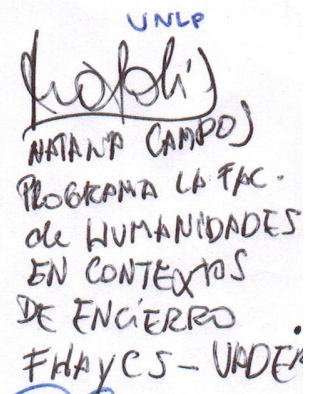 UNLP
NATALIA CAMPOS
PROGRAMA LA FAC.
de HUMANIDADES
EN CONTEXTOS
DE ENCIERRO
FHAyCS - UADER